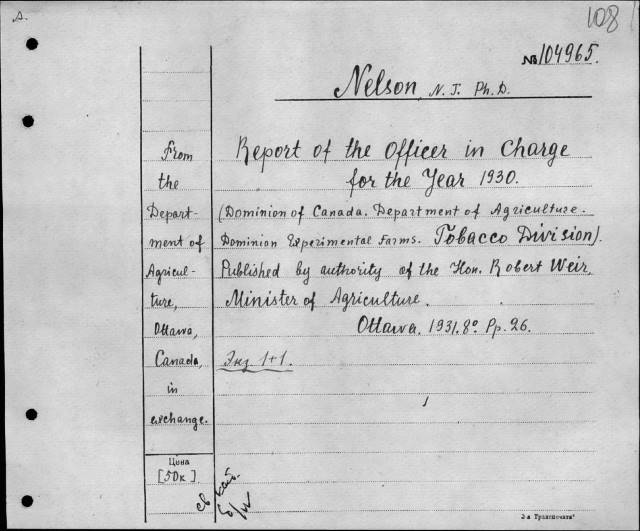 A.
108
№ 104965.
Nelson, N. T. Ph. D.
Report of the Officer in Charge
for the Year 1930.
(Dominion of Canada. Department of Agriculture.
Dominion Experimental Farms. Tobacco Division).
Published by authority of the Hon. Robert Weir,
Minister of Agriculture.
Ottawa. 1931. 8° Pp. 26.
Экз. 1+1.
From
the
Depart-
ment of
Agricul-
ture,
Ottawa,
Canada,
in
exchange.
Цена
[50к]
2-я Транспечать